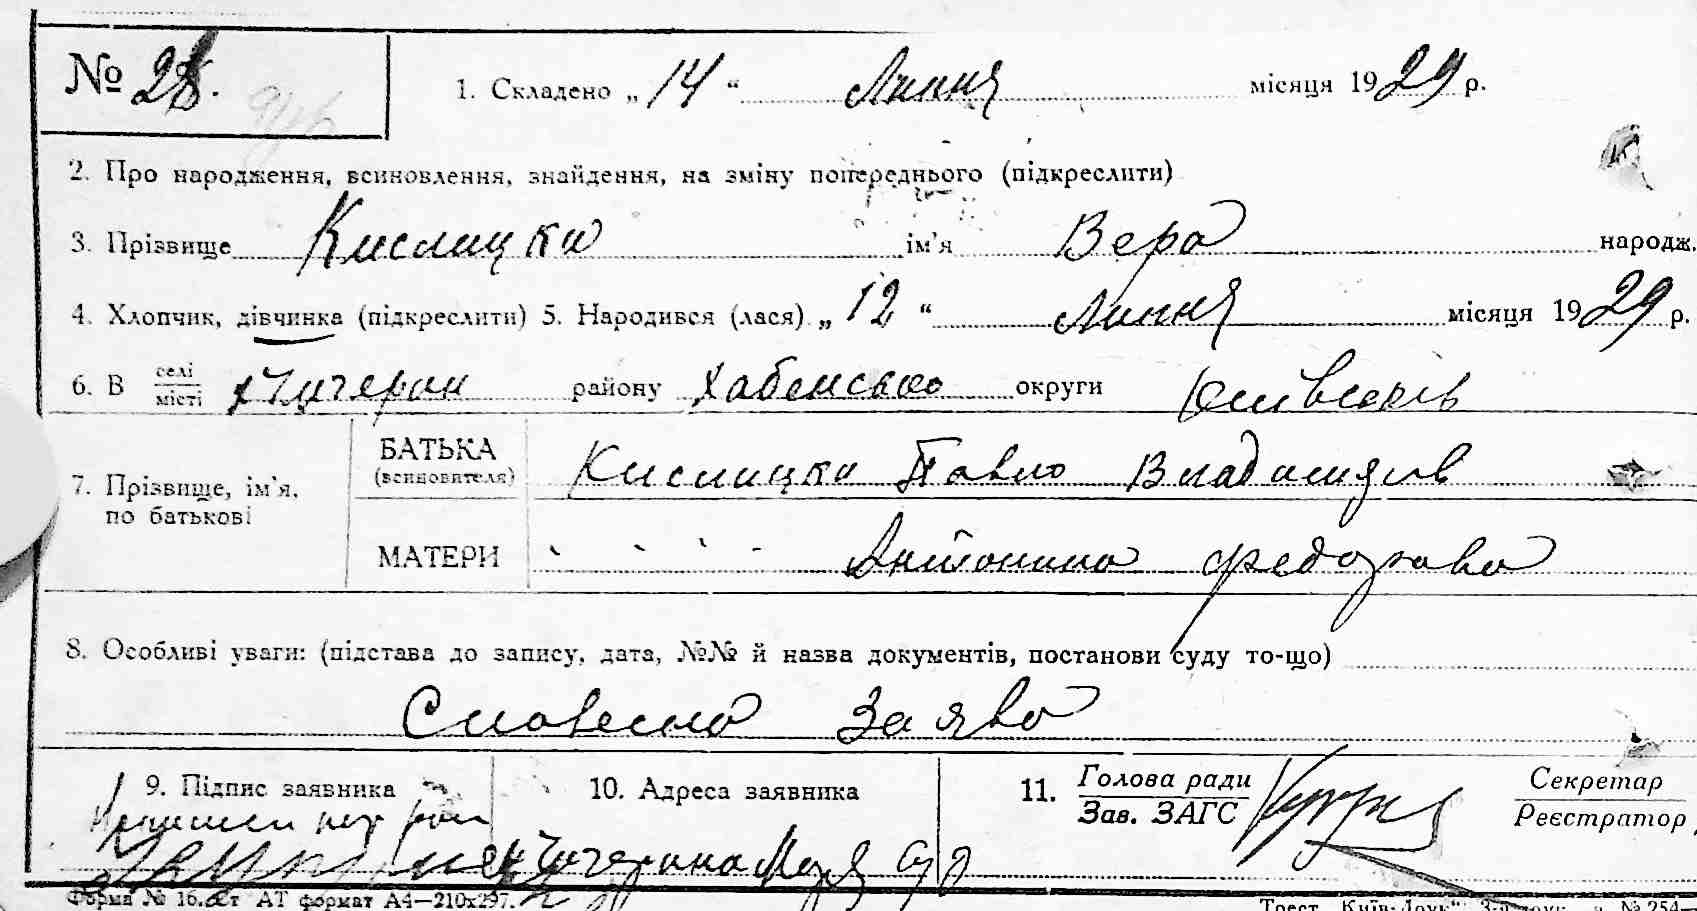 № 28. 1. Складено „14“ Липня місяця 1929 р.
2. Про народження, всиновлення, знайдення, на зміну попереднього (підкреслити)
3. Прізвище Кислицки ім'я Вера народж.
4. Хлопчик, дівчинка (підкреслити) 5. Народився (лася) „12“ Липня місяця 1929 р.
6. В селі місті х Чичерин району Хабенського округи
7. Прізвище, ім'я, по батькові
БАТЬКА (всиновителя) Кислицки Павло Владимиров
МАТЕРИ Антонина Федорова
8. Особливі уваги: (підстава до запису, дата, №№ й назва документів, постанови суду то-що)
Словесна Заява
9. Підпис заявника 10. Адреса заявника 11. Голова ради Секретар
Зав. ЗАГС Реєстратор
х Чичерина
Форма № 16. Ст АТ формат А4—210х297.
Трест „Київ-Друк“ № 254—